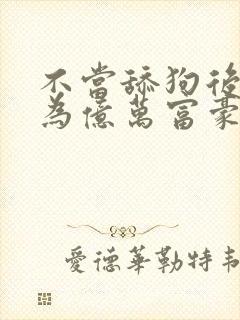 不當舔狗後
為億萬富豪
愛德華勒特韋